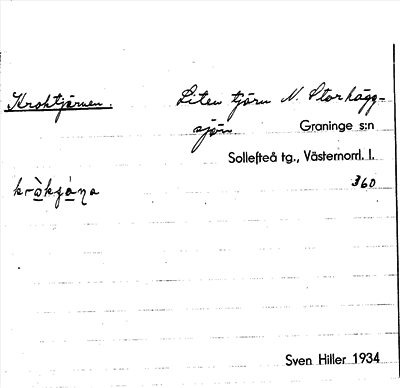 Kroktjärnen. Liten tjärn N. Storhägg-
sjön
Graninge s:n
Sollefteå tg., Västernorrl. l.
360
Sven Hiller 1934